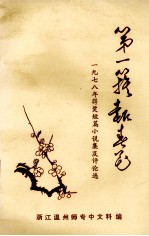 第一簇报春花
一九七八年获奖短篇小说集及评论选
浙江温州师专中文科编